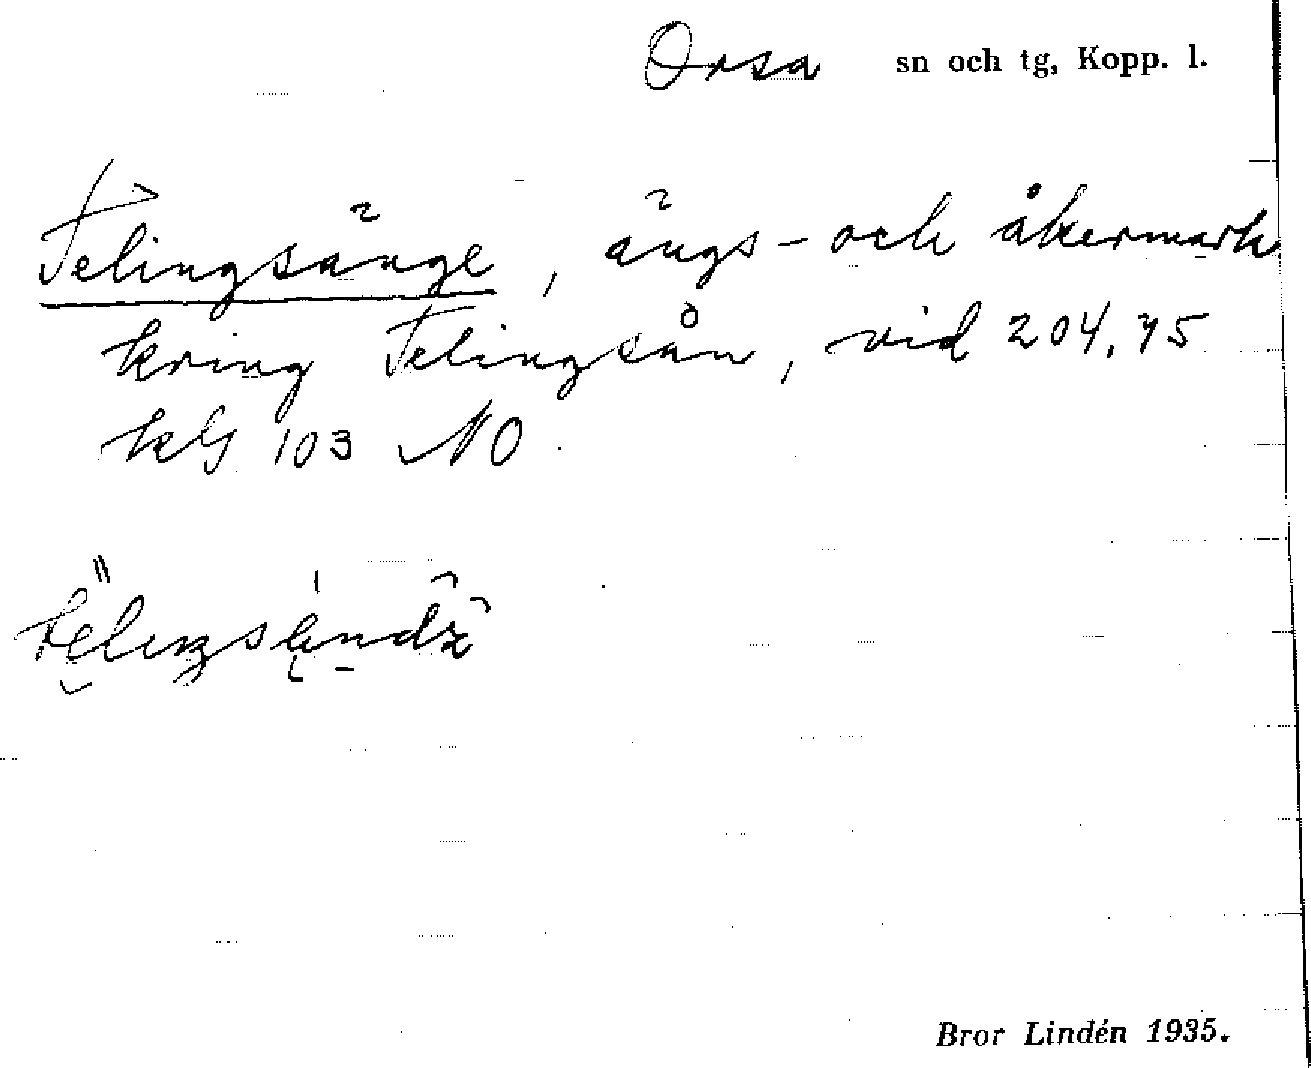 Orsa sn och tg, Kopp. l.
Telingsänge, ängs- och åkermark
kring Telingsån, vid 204,75
kbl 103 NO.
Bror Lindén 1935.